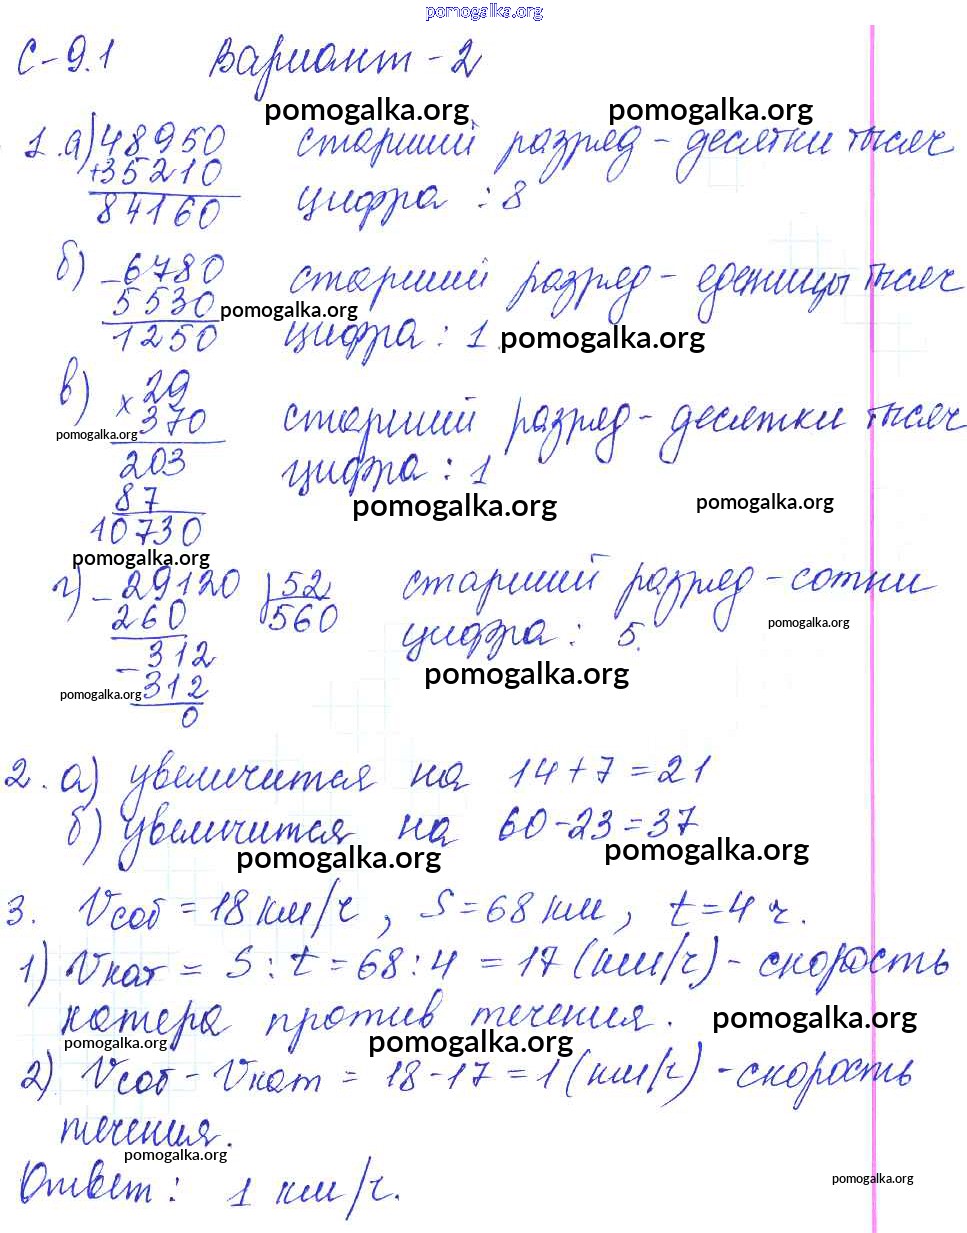 pomogalka.org
С-9.1 Вариант-2
pomogalka.org pomogalka.org
1.а) 48950 старший разряд - десятки тысяч
+35210 цифра : 8
84160
б) -6780 старший разряд - еденицы тысяч
5530 pomogalka.org
1250 цифра : 1. pomogalka.org
в) × 29
370 старший разряд - десятки тысяч
pomogalka.org
203 цифра : 1
87 pomogalka.org pomogalka.org
10730
pomogalka.org
г) -29120 52 старший разряд - сотни
260 560 цифра : 5. pomogalka.org
-312 pomogalka.org
pomogalka.org 312
0
2. а) увеличится на 14+7=21
б) увеличится на 60-23=37
pomogalka.org pomogalka.org
3. Vсоб = 18 км/ч, S=68 км, t=4 ч.
1) Vкат = S : t = 68 : 4 = 17 (км/ч) - скорость
катера против течения. pomogalka.org
pomogalka.org pomogalka.org
2) Vсоб - Vкат = 18-17 = 1 (км/ч) - скорость
течения.
pomogalka.org
Ответ : 1 км/ч. pomogalka.org